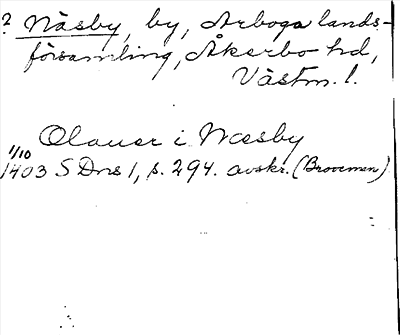 ? Näsby, by, Arboga lands-
församling, Åkerbo hd,
Västm. l.
Olauer i Næsby
1/10
1403 S Dns 1, s. 294. avskr. (Brovman)